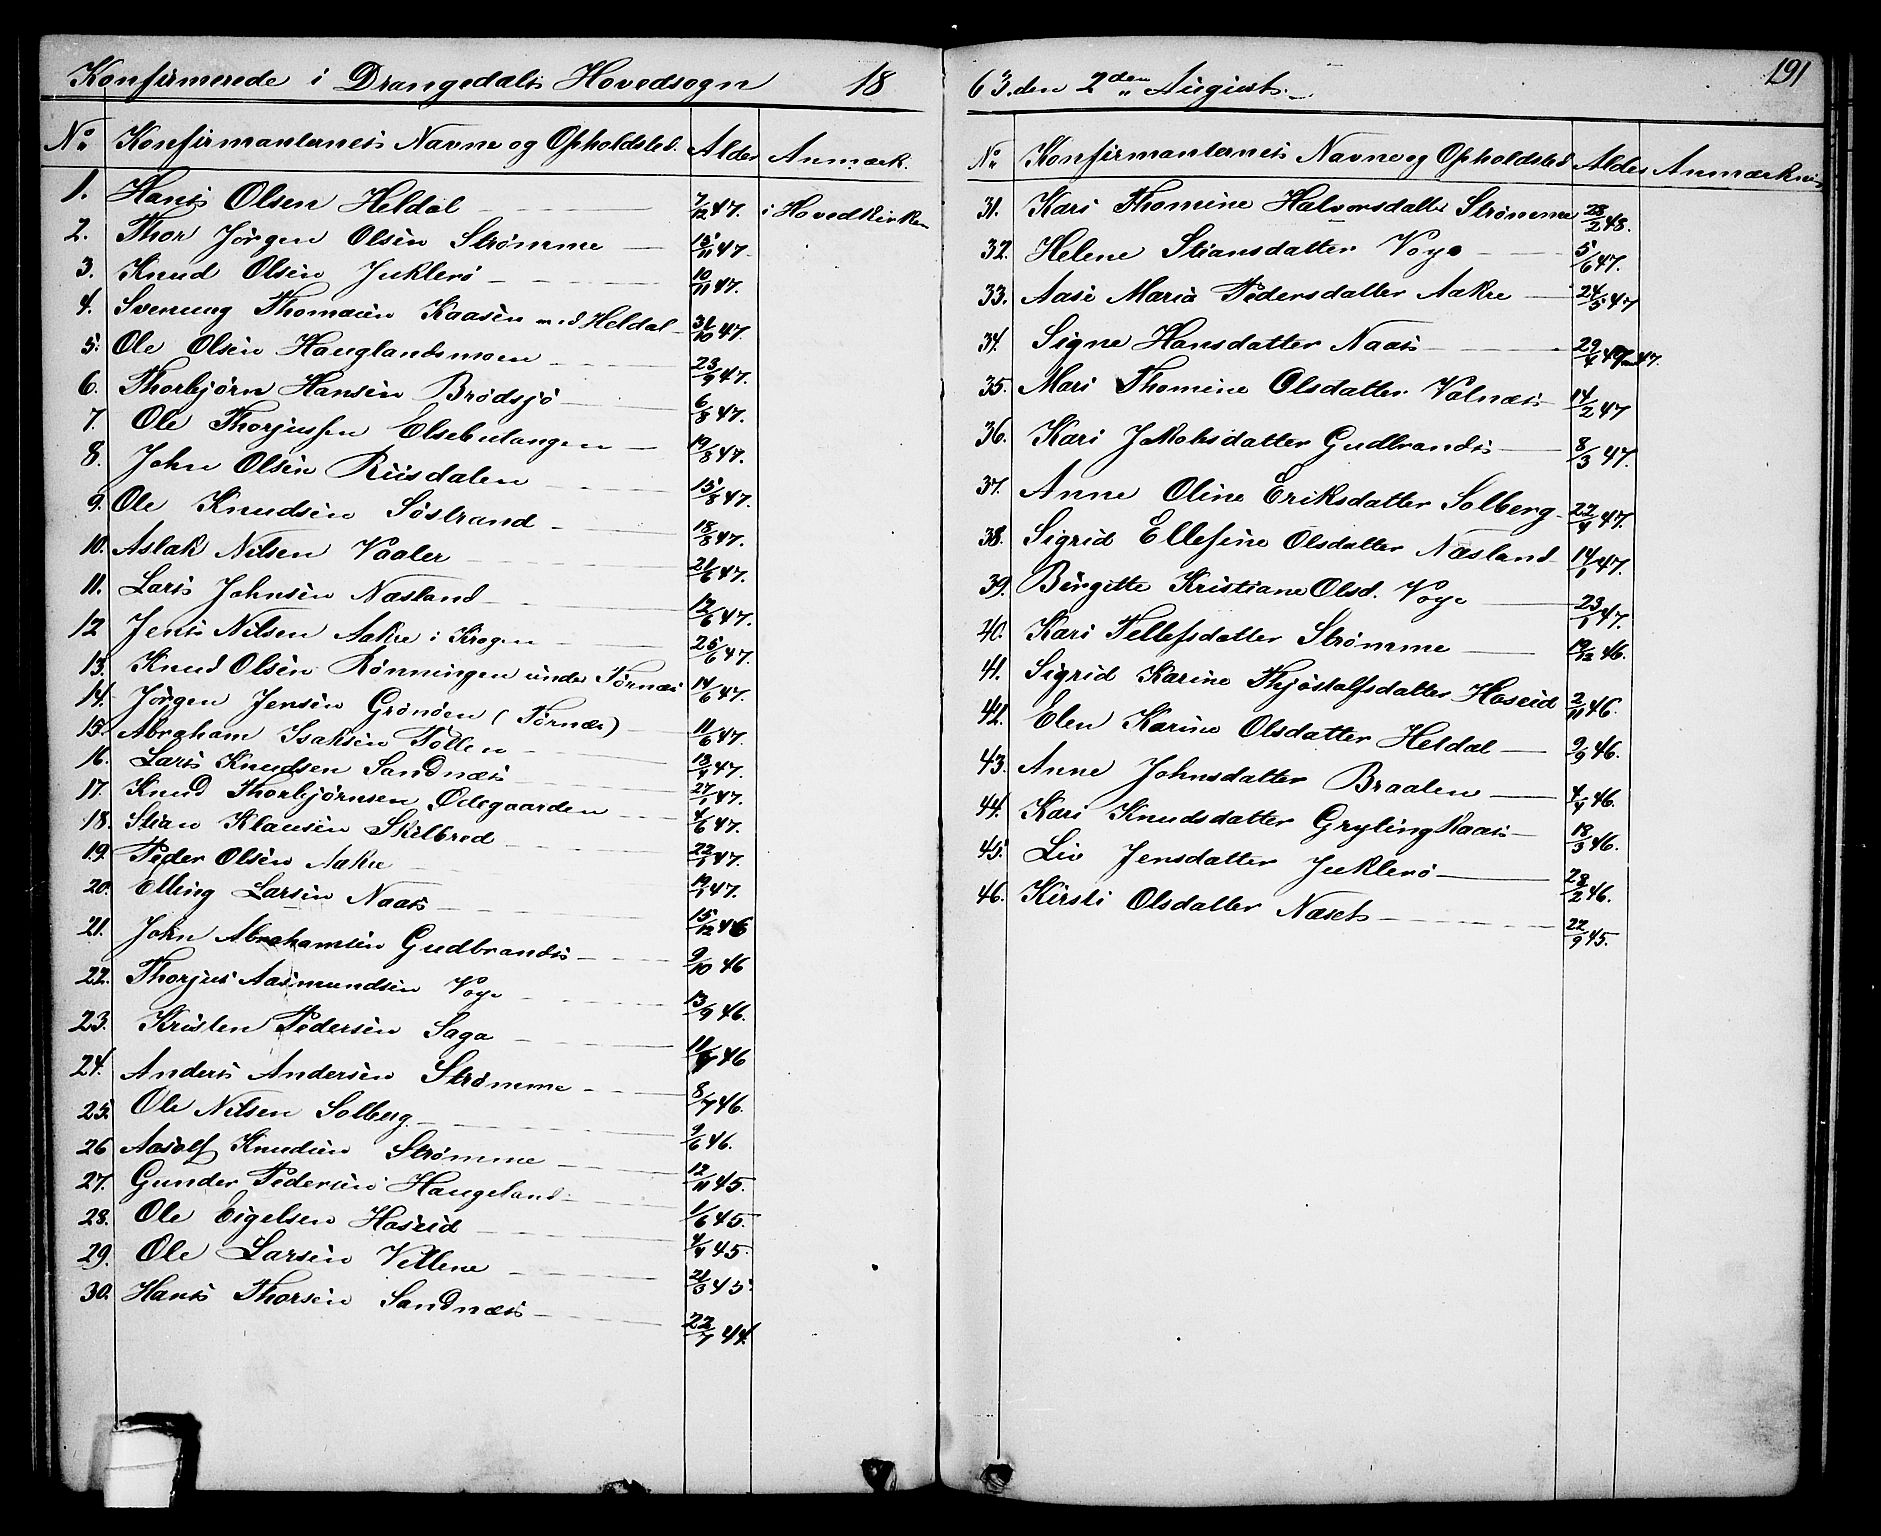 Konfirmerede i Drangedals Hovedsogn 18
No Konfirmanternes Navne og Opholdsted. Alder Anmærk.
1. Hans Olsen Heldal 7/12 47. i Hovedkirken
2. Thor Jörgen Olsen Strømme 15/11 47.
3. Knud Olsen Juklerö 10/11 47.
4. Svenung Thomæsen Kaasen ved Heldal 31/10 47.
5. Ole Olsen Hauglandsmoen 23/9 47.
6. Thorbjörn Hansen Brödsjö 6/8 47.
7. Ole Thorjussen Elsebutangen 19/8 47.
8. John Olsen Riisdalen 15/8 47.
9. Ole Knudsen Söstrand 18/8 47.
10. Aslak Nilsen Vaaler 21/6 47.
11. Lars Johnsen Næsland 12/6 47.
12 Jens Nilsen Aakre i Krogen 25/6 47.
13. Knud Olsen Rönningen under Törnæs 14/6 47.
14. Jörgen Jensen Grönöen (Törnæs) 11/6 47.
15. Abraham Isaksen Tollen 18/4 47.
16. Lars Knudsen Sandnæs 27/1 47.
17. Knud Thorbjörnsen Ødegaarden 4/6 47.
18. Stian Klausen Skelbred 22/1 47.
19. Peder Olsen Aakre 19/1 47.
20. Elling Larsen Naas 15/12 46
21. John Abrahamsen Gudbrands 9/10 46
22. Thorjus Aasmundsen Voje 13/9 46.
23. Kristen Pedersen Saga 11/9 46
24. Anders Andersen Strømme 8/7 46.
25. Ole Nilsen Solberg 9/6 46.
26 Aasolf Knudsen Strømme 12/11 45.
27. Gunder Pedersen Haugeland 1/6 45.
28. Ole Eigelsen Haseid 4/4 45.
29. Ole Larsen Vetlene 21/3 45.
30. Hans Thorsen Sandnæs 22/7 44.
63. den 2den August. 191
No Konfirmanternes Navne og Opholdsted Alder Anmærkning
31. Kari Thomine Halvorsdatter Strømme 28/2 48.
32. Helene Stiansdatter Voje 5/6 47.
33. Aase Maria Pedersdatter Aakre 24/5 47
34. Signe Hansdatter Naas 29/4 47.
35. Mari Thomine Olsdatter Valnæs 14/2 47
36. Kari Jakobsdatter Gudbrands 8/3 47.
37. Anne Oline Eriksdatter Solberg 22/4 47.
38. Sigrid Ellefine Olsdatter Næsland 14/1 47.
39. Birgitte Kristiane Olsd. Voje 23/1 47.
40. Kari Tellefsdatter Strömme 19/12 46.
41. Sigrid Karine Thjöstolfsdatter Haseid 2/11 46.
42. Elen Karine Olsdatter Heldal 9/9 46.
43. Anne Johnsdatter Braalen 4/4 46.
44. Kari Knudsdatter Grylingkaas 18/3 46.
45. Liv Jensdatter Juklerö 28/2 46.
46. Kirsti Olsdatter Næset 22/9 45.